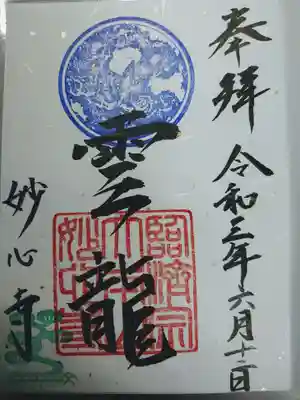 奉拝 令和三年六月十二日
雲龍
臨済宗
大本山
妙心寺
妙心寺